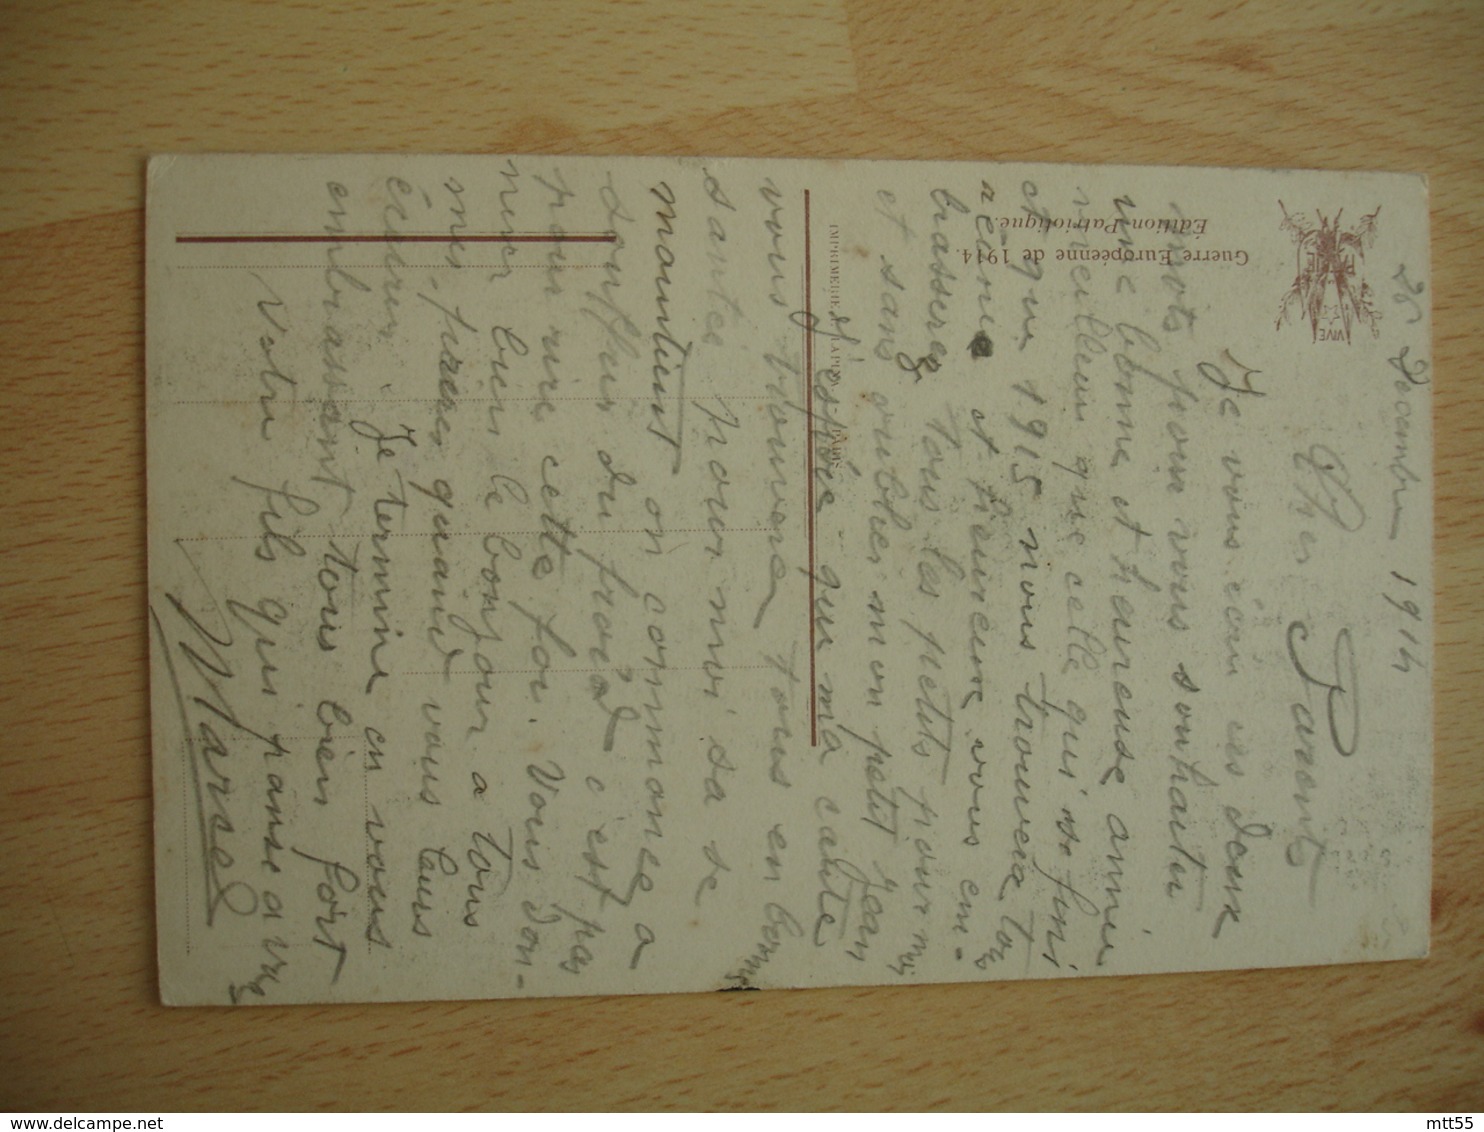 28 Decembre 1914
Chers Parents
Je vous écris ces deux
mots pour vous souhaiter
une bonne et heureuse année
meilleur que celle qui se fini
et que 1915 nous trouvera tous
réunie et heureux vous em-
brasserez tous les petits pour moi
et sans oublier mon petit Jean
J'espére que ma carte
vous trouvera tous en bonne
santé pour moi sa se
maintient on commence a
souffrir du froid c'est pas
pour rire cette foi. Vous don-
nerez bien le bonjour a tous
mes freres quand vous leurs
écrirez Je termine en vous
embrassant tous bien fort
Votre fils qui panse a vous
Marcel
VIVE LA PATRIE
Guerre Européenne de 1914.
Édition Patriotique.
IMPRIMERIE PARIS
mtt55